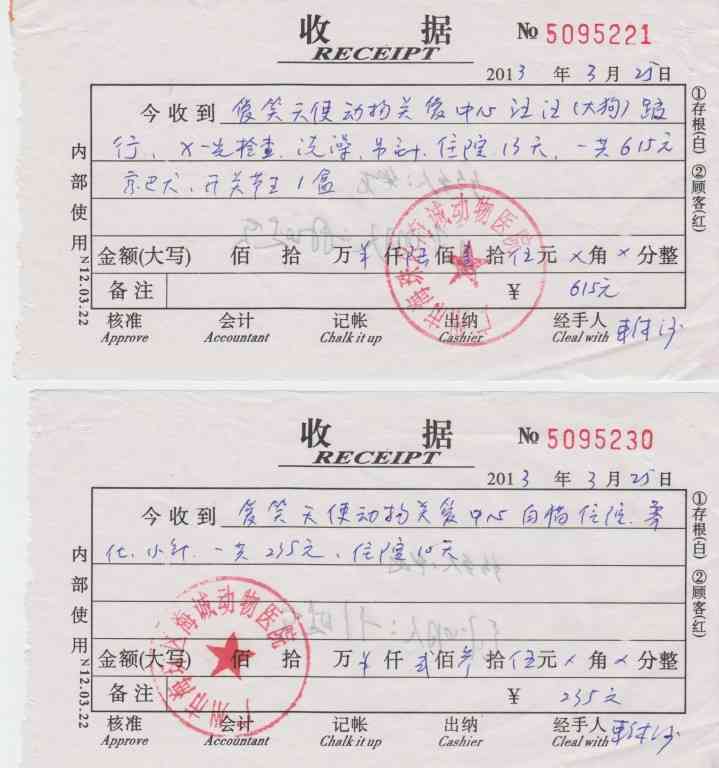 收 据
RECEIPT
No 5095221
2013 年 3 月 25 日
今收到 笑天使动物关爱中心 汪汪(大狗)
行、X一光检查、洗澡、吊针、住院 13天、一共615元
内部使用 N12.03.22
①存根(白) ②顾客(红)
金额(大写) 佰 拾 万 ¥ 仟 陆 佰 壹 拾 伍 元 × 角 × 分整
备注 ¥ 615元
核准 会计 记帐 出纳 经手人
Approve Accountant Chalk it up Cashier Cleal with
广州市海珠区海诚动物医院
收 据
RECEIPT
No 5095230
2013 年 3 月 25 日
今收到 笑天使动物关爱中心 白猫住院、雾
化、小针、一共 235元、住院10天
内部使用 N12.03.22
①存根(白) ②顾客(红)
金额(大写) 佰 拾 万 ¥ 仟 贰 佰 叁 拾 伍 元 × 角 × 分整
备注 ¥ 235元
核准 会计 记帐 出纳 经手人
Approve Accountant Chalk it up Cashier Cleal with
广州市海珠区海诚动物医院